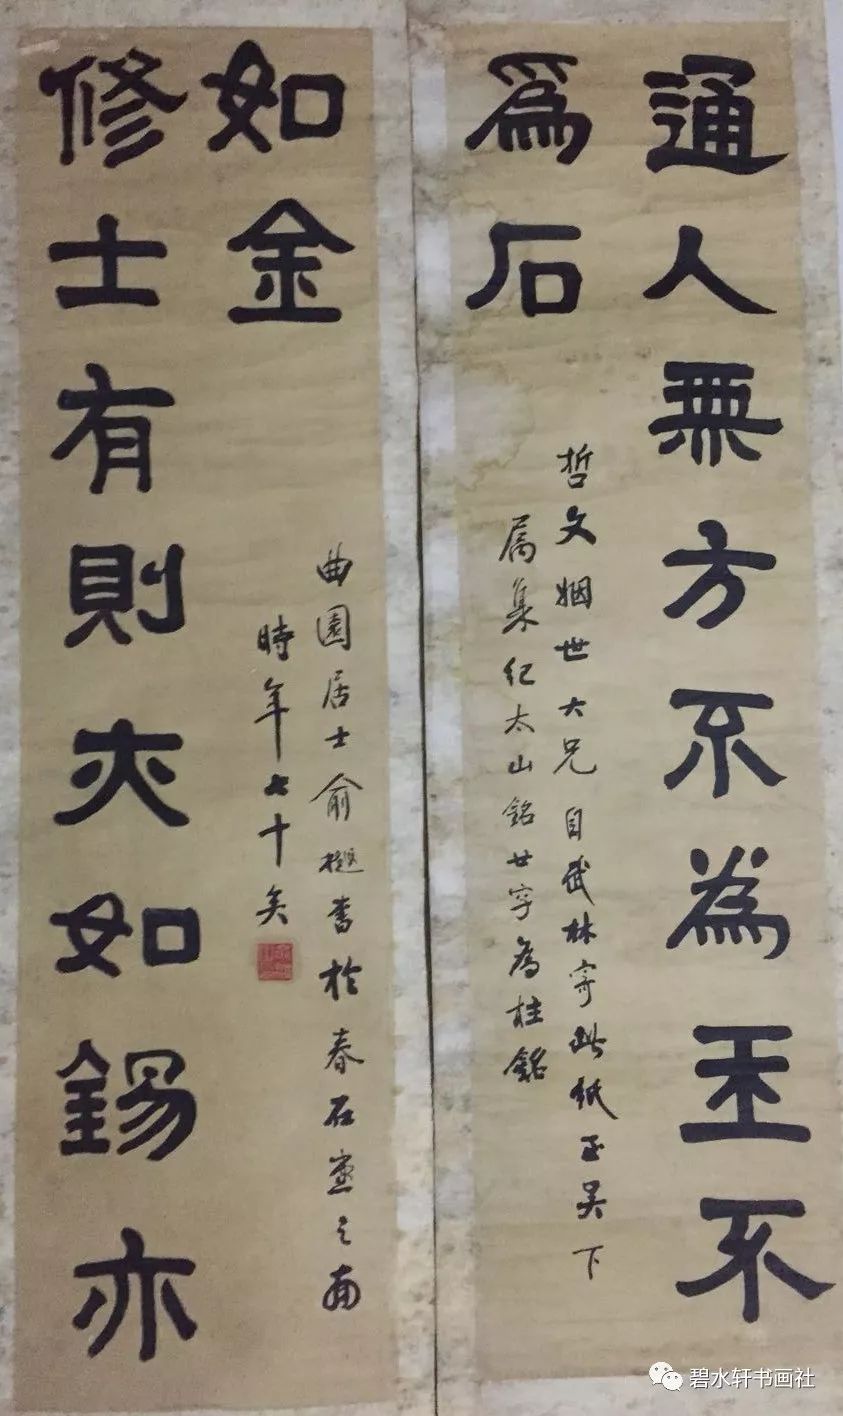 通人無方不為玉不
爲石
哲文姻世大兄自武林寄此紙至吳下
屬集紀太山銘廿字為柱銘
修士有則亦如錫亦
如金
曲園居士俞樾書於春在堂之南
時年七十矣
碧水轩书画社